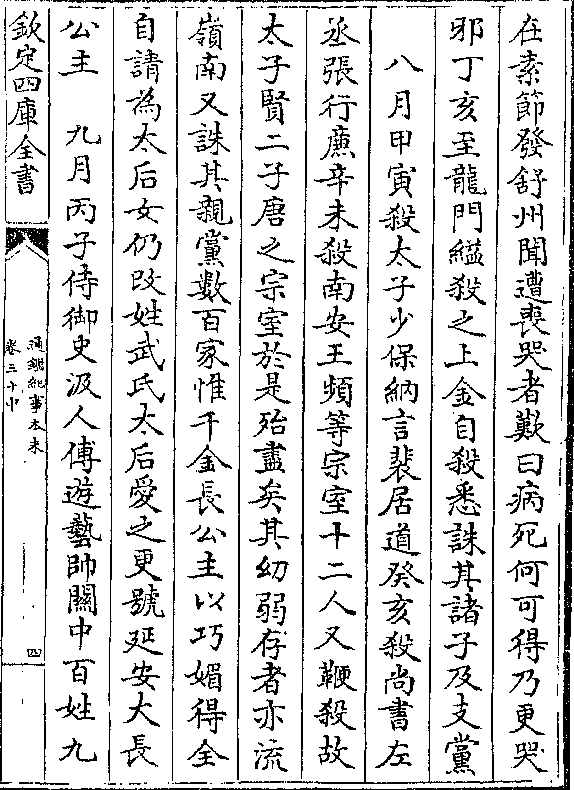 在素節發舒州聞遭喪哭者歎曰病死何可得乃更哭
邪丁亥至龍門縊殺之上金自殺悉誅其諸子及支黨
八月甲寅殺太子少保納言裴居道癸亥殺尚書左
丞張行㢘辛未殺南安王頻等宗室十二人又鞭殺故
太子賢二子唐之宗室於是殆盡矣其幼弱存者亦流
嶺南又誅其親黨數百家惟千金長公主以巧媚得全
自請為太后女仍改姓武氏太后愛之更號延安大長
公主　九月丙子侍御史汲人傅遊藝帥關中百姓九
欽定四庫全書
通鑑紀事本末
卷三十中
四